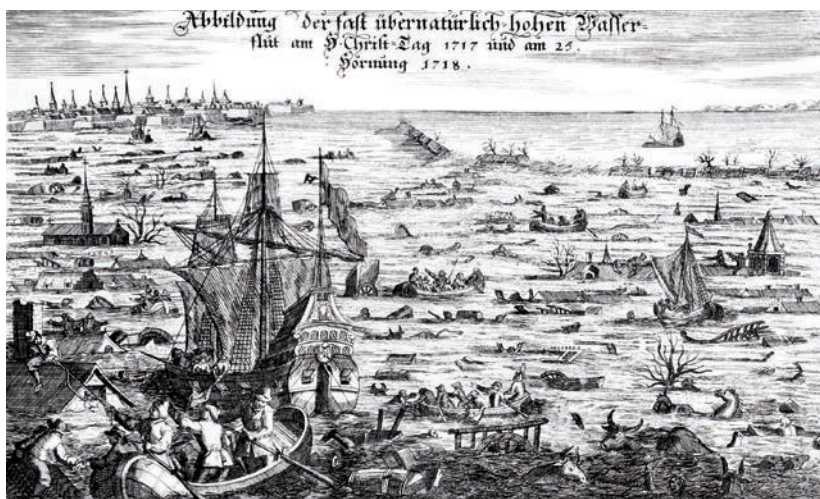 Abbildung der fast übernatürlich hohen Wasser-
flut am H. Christ-Tag 1717 und am 25.
Hornung 1718.